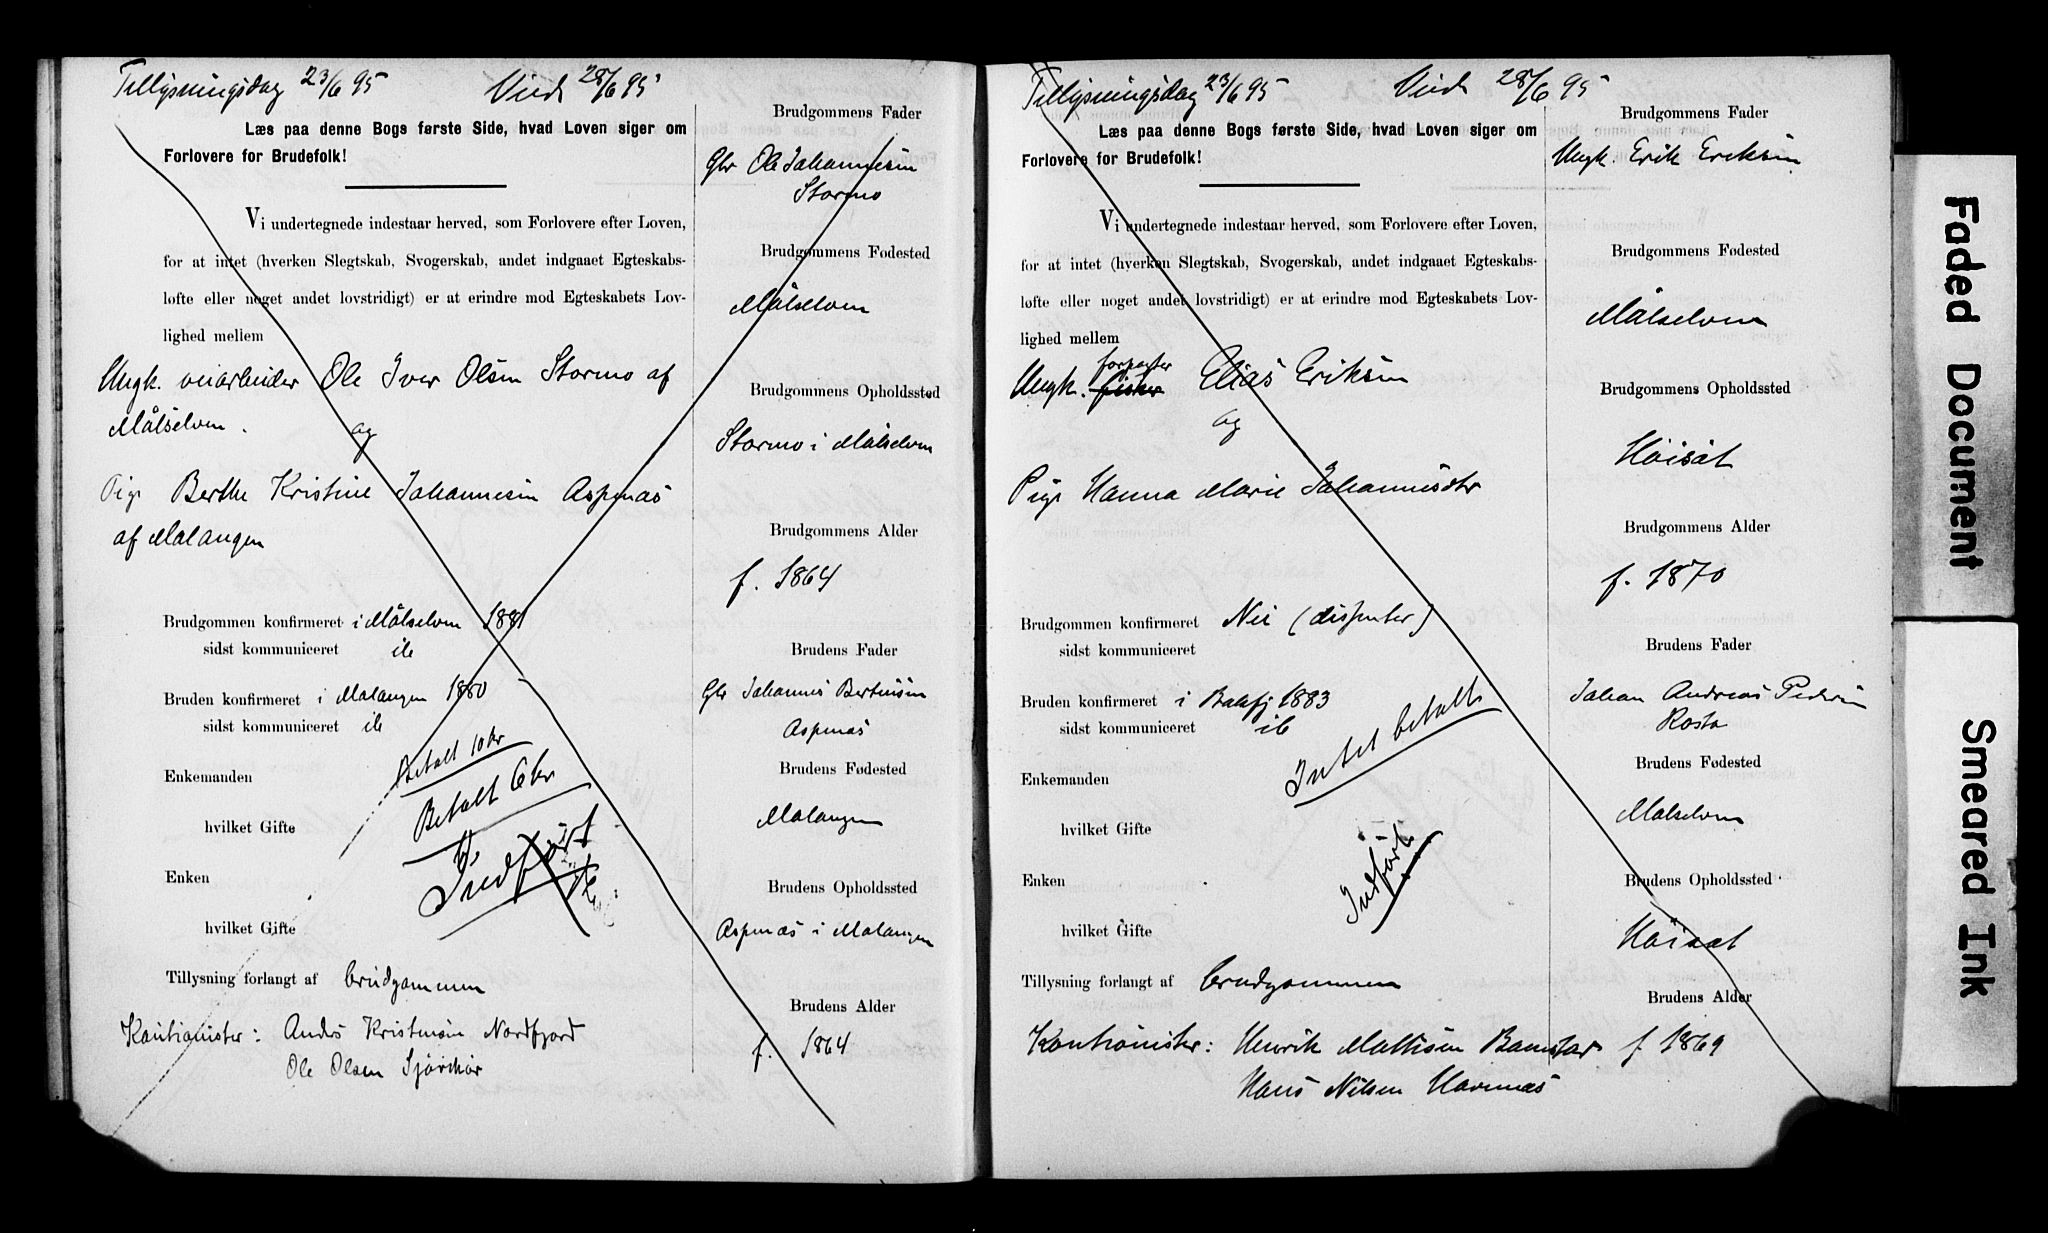 Tillysningsdag 23/6 95 Viede 28/6 95
Læs paa denne Bogs første Side, hvad Loven siger om
Forlovere for Brudefolk!
Vi undertegnede indestaar herved, som Forlovere efter Loven,
for at intet (hverken Slegtskab, Svogerskab, andet indgaaet Egteskabs-
løfte eller noget andet lovstridigt) er at erindre mod Egteskabets Lov-
lighed mellem
Ungk. veiarbeider Ole Iver Olsen Stormo af
Målselven.
og
Pige Berthe Kristine Johannesen Aspenæs
af Malangen
Brudgommen konfirmeret i Målselven 1881
sidst kommuniceret ib
Bruden konfirmeret i Malangen 1880
sidst kommuniceret ib
Betalt 10 kr
Betalt 6 kr
Indført
Enkemanden
hvilket Gifte
Enken
hvilket Gifte
Tillysning forlangt af brudgommen
Kautionister: Anders Kristensen Nordfjord
Ole Olsen
Brudgommens Fader
Gbr Ole Johannesen
Stormo
Brudgommens Fødested
Målselven
Brudgommens Opholdssted
Stormo i Målselven
Brudgommens Alder
f. 1864
Brudens Fader
Gbr Johannes Berthesen
Aspenæs
Brudens Fødested
Malangen
Brudens Opholdssted
Aspenæs i Malangen
Brudens Alder
f. 1864
Tillysningsdag 23/6 95 Viede 28/6 95
Læs paa denne Bogs første Side, hvad Loven siger om
Forlovere for Brudefolk!
Vi undertegnede indestaar herved, som Forlovere efter Loven,
for at intet (hverken Slegtskab, Svogerskab, andet indgaaet Egteskabs-
løfte eller noget andet lovstridigt) er at erindre mod Egteskabets Lov-
lighed mellem
forpagter
Ungk. fisker Elias Eriksen
og
Pige Hanna Marie Johannesdtr
Brudgommen konfirmeret Nei (dispenter)
sidst kommuniceret
Bruden konfirmeret i Balsfj 1883
sidst kommuniceret ib
Intet betalt
Indført
Enkemanden
hvilket Gifte
Enken
hvilket Gifte
Tillysning forlangt af brudgommen
Kautionister: Henrik Mathisen
Hans Nilsen Havnnæs
Brudgommens Fader
Ungk. Erik Eriksen
Brudgommens Fødested
Målselven
Brudgommens Opholdssted
Høisæt
Brudgommens Alder
f. 1870
Brudens Fader
Johan Andreas Pedersen
Rosta
Brudens Fødested
Målselven
Brudens Opholdssted
Høisæt
Brudens Alder
f 1869
Faded Document
Smeared Ink